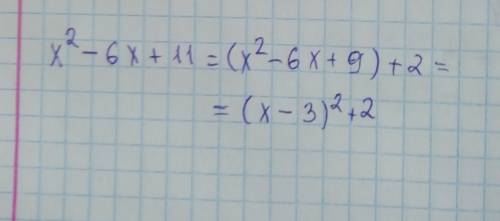 x² - 6x + 11 = (x² - 6x + 9) + 2 =
= (x - 3)² + 2